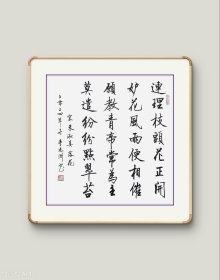 連理枝頭花正開
妒花風雨便相催
願教青帝常為主
莫遣紛紛點翠苔
宋朱淑真落花
二零二四年